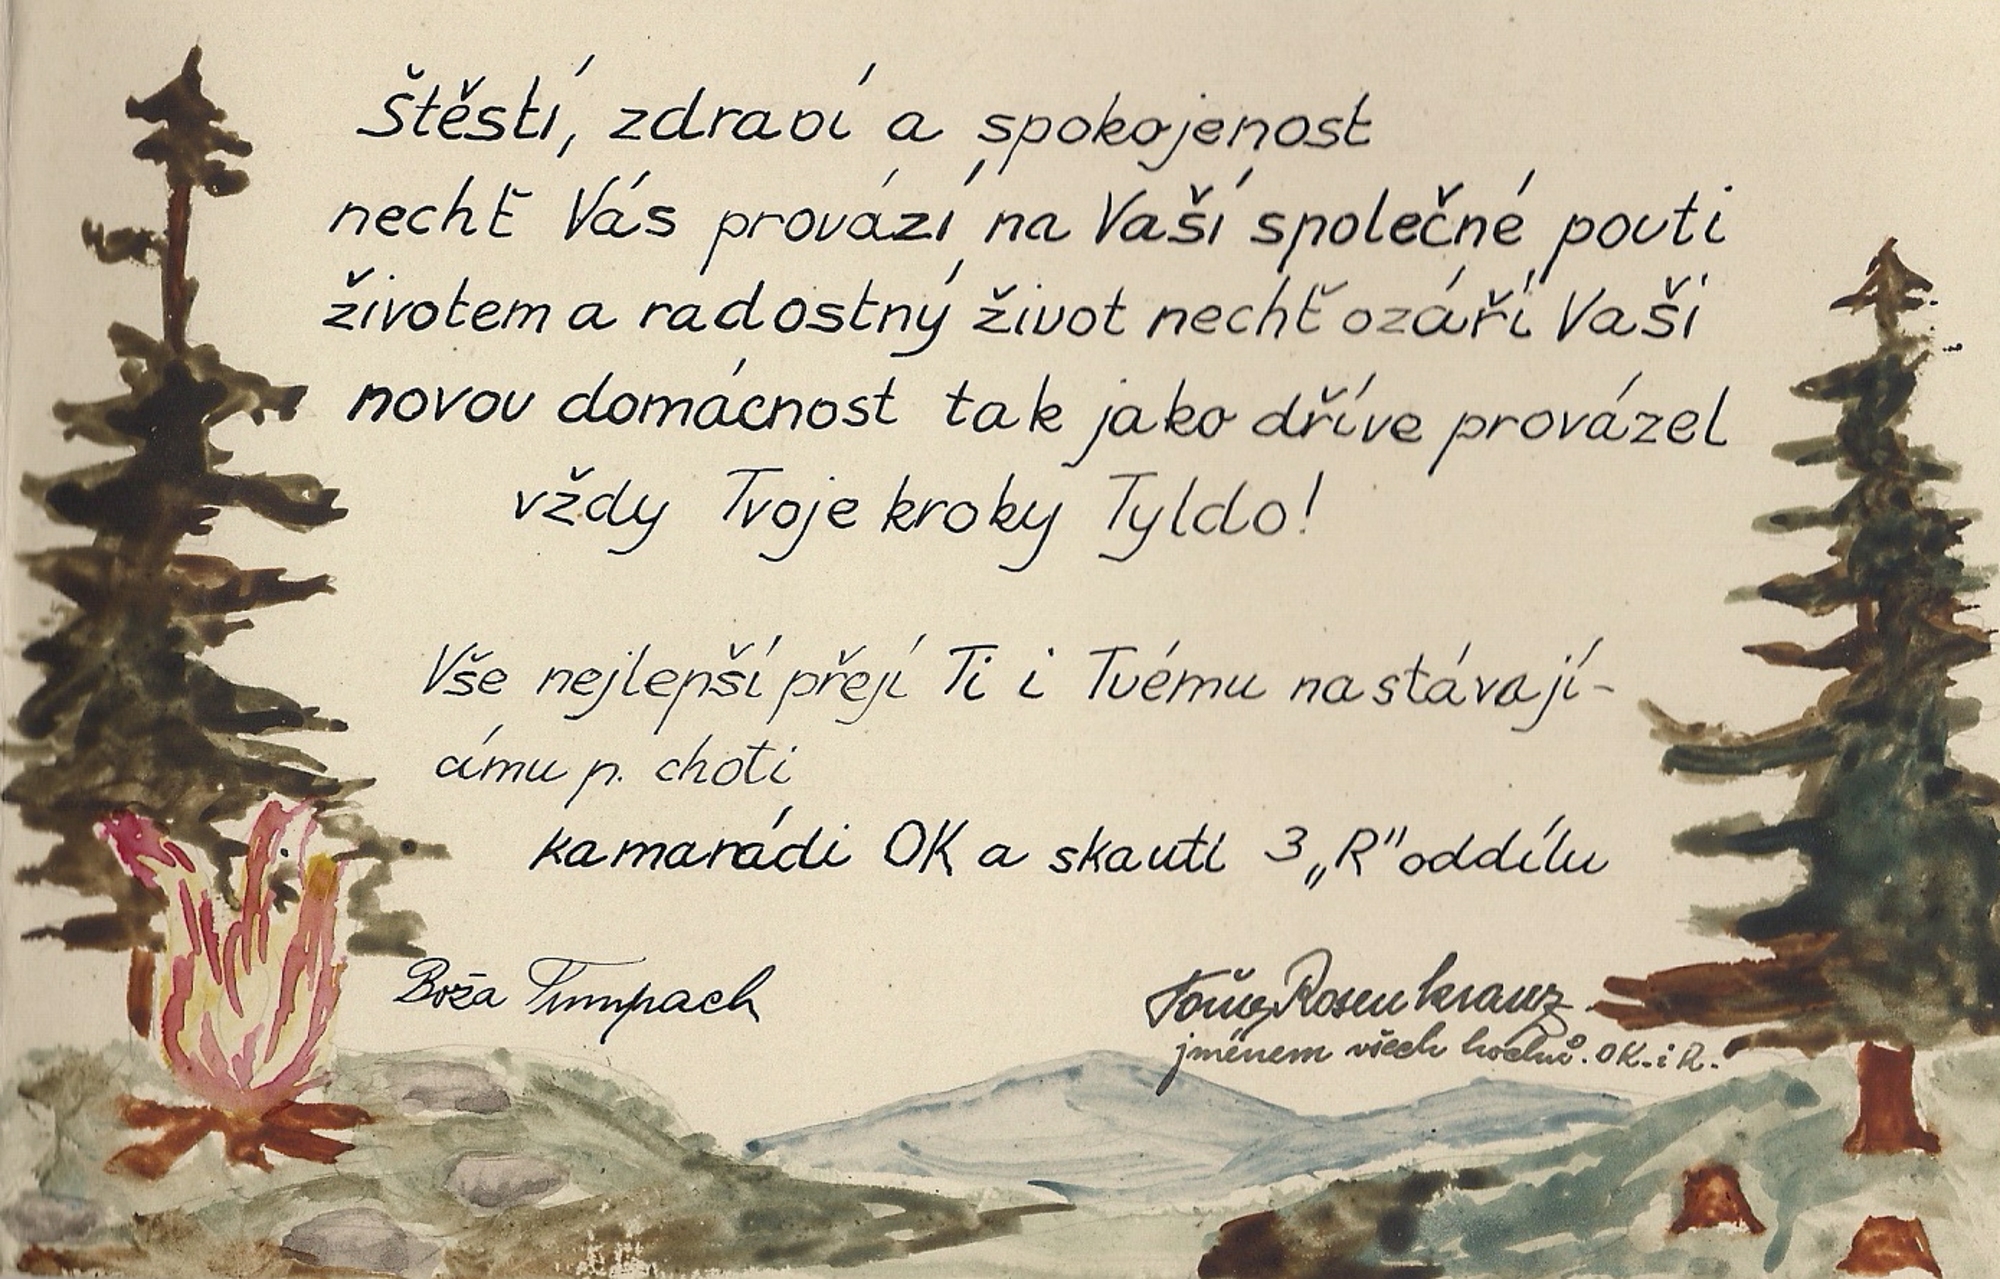 Štěstí, zdraví a spokojenost
nechť Vás provází na Vaší společné pouti
životem a radostný život nechť ozáří Vaši
novou domácnost tak jako dříve provázel
vždy Tvoje kroky Tyldo!
Vše nejlepší přejí Ti i Tvému nastávají-
címu p. choti
kamarádi OK a skauti 3 „R" oddílu
Boža Tumpach
Rosenkranz
jménem všech hochů. OK. i R.